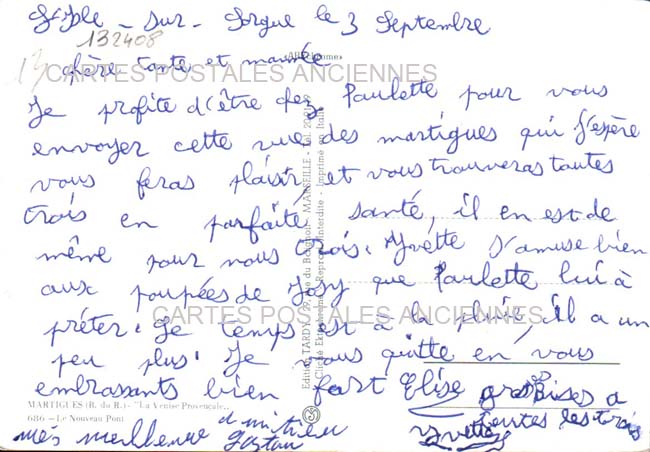 L'Isle - Sur - Sorgue le 3 Septembre
132408
13
chère tante et mamée
CARTES POSTALES ANCIENNES
Je profite d'être chez Paulette pour vous
envoyer cette vue des martigues qui j'espère
vous feras plaisir et vous trouveras toutes
trois en parfaite santé, il en est de
même pour nous trois. Yvette s'amuse bien
aux poupées de Josy que Paulette lui à
prêter. Le temps est à la pluie, il a un
CARTES POSTALES ANCIENNES
peu plus. Je vous quitte en vous
embrassants bien fort Elise gros Bises a
toutes les trois
Yvette
mes meilleure d'amitieu
Gaston
MARTIGUES (B. du R.) - "La Venise Provençale"
686 - Le Nouveau Pont
Edition TARDY, rue du - MARSEILLE - Tél.
Cliché - Reproduction Interdite - Imprimé en Italie